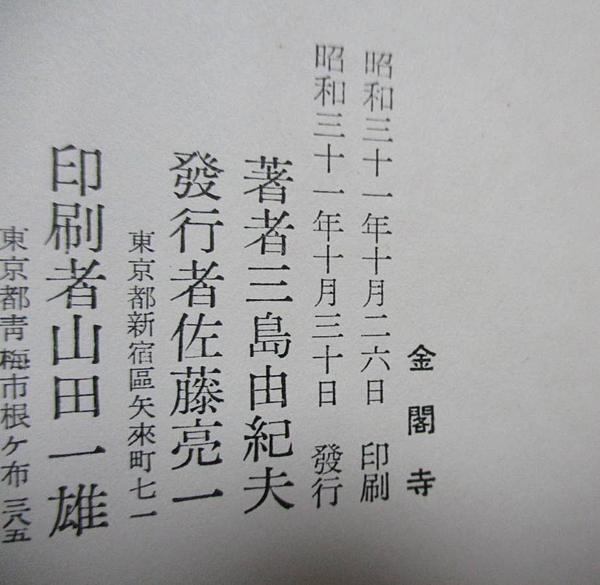 金閣寺
昭和三十一年十月二六日 印刷
昭和三十一年十月三十日 發行
著者三島由紀夫
發行者佐藤亮一
東京都新宿區矢來町七一
印刷者山田一雄
東京都靑梅市根ケ布三八五